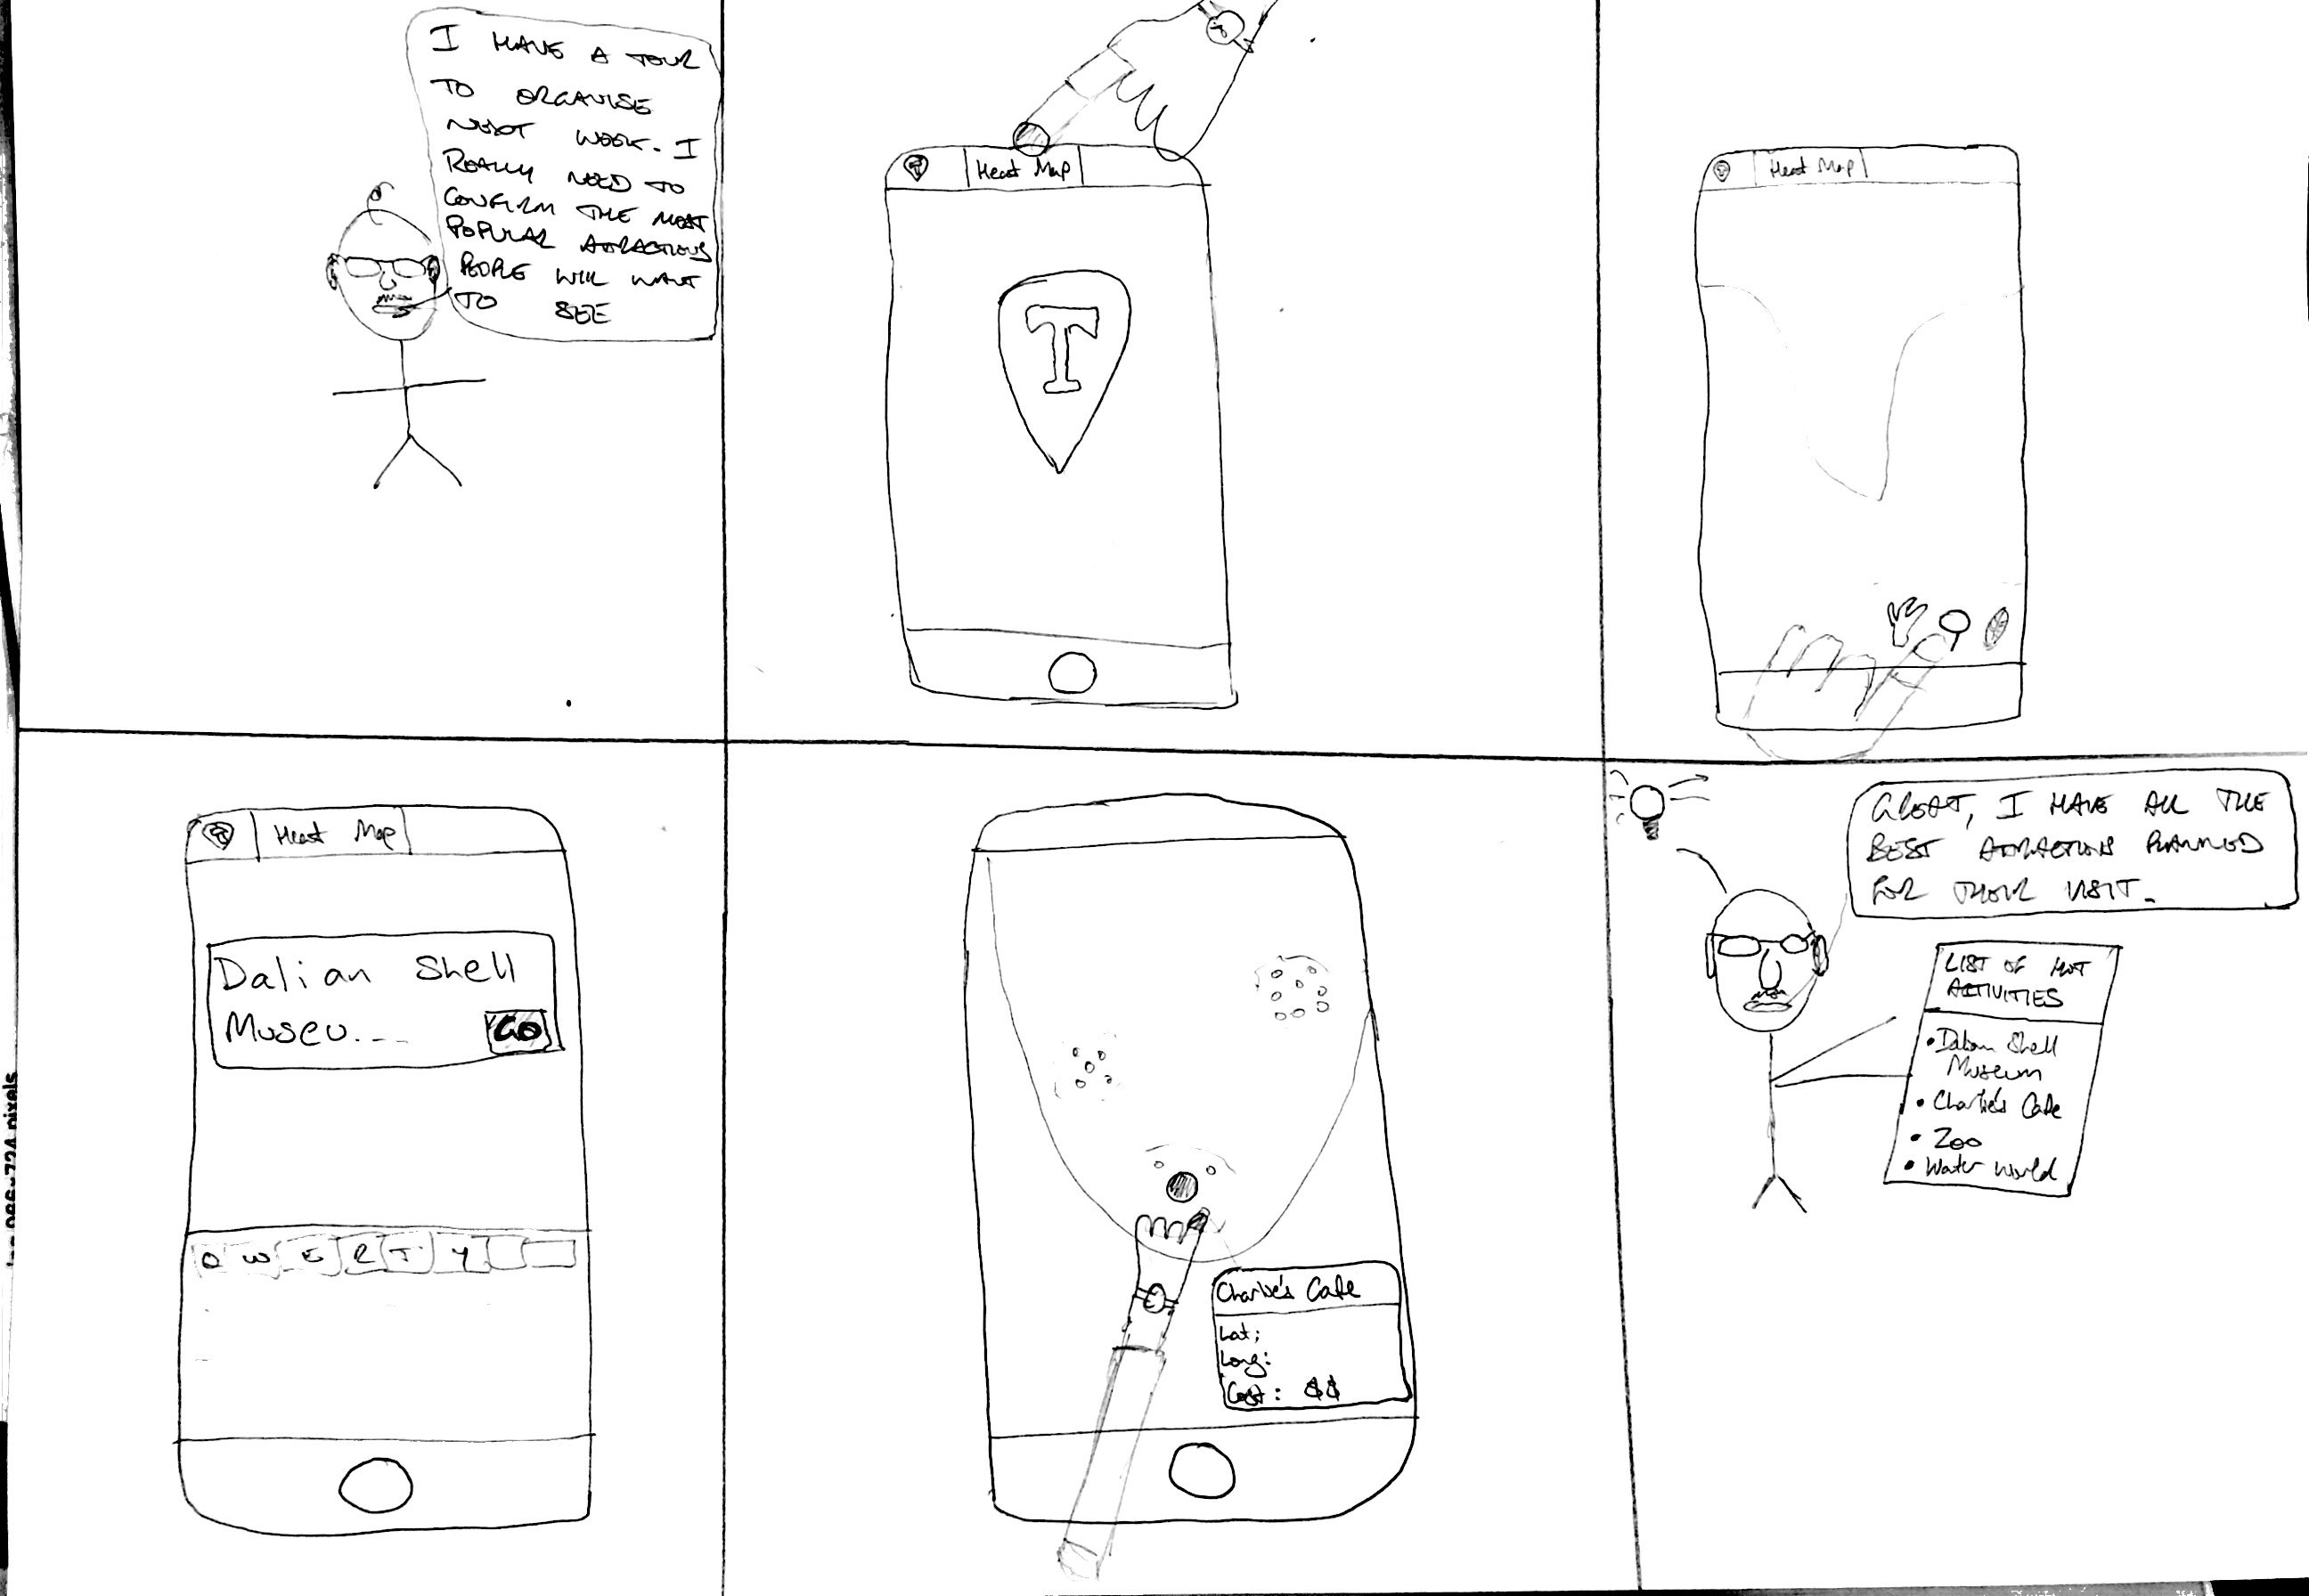 I HAVE A TOUR
TO ORGANISE
NEXT WEEK. I
REALLY NEED TO
CONFIRM THE MOST
POPULAR ATTRACTIONS
PEOPLE WILL WANT
TO SEE
T
Heat Map
T
Heat Map
T
Heat Map
Dalian Shell
Museu...
GO
Q W E R T Y
Charlie's Cafe
Lat:
Long:
Cost: $$
GREAT, I HAVE ALL THE
BEST ATTRACTIONS PLANNED
FOR THEIR VISIT.
LIST OF HOT
ACTIVITIES
• Dalian Shell
Museum
• Charlie's Cafe
• Zoo
• Water World